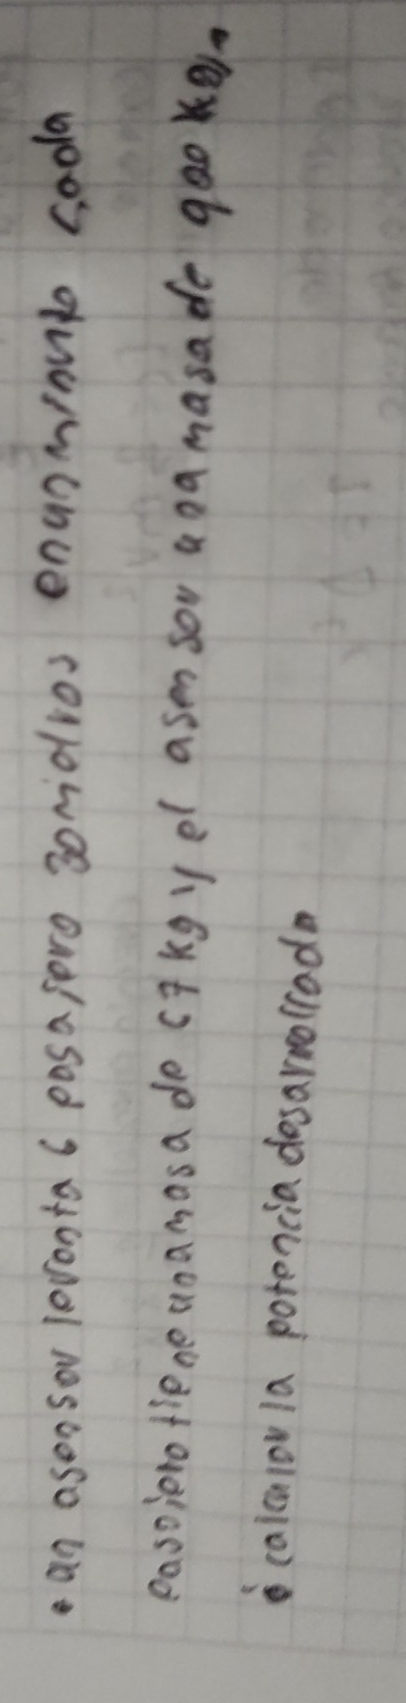 • un asensor levanta 6 pasajero 30 metros en un minuto cada
pasajero tiene una masa de 67 kg y el asensor una masa de 900 kg,
• calcular la potencia desarrollada